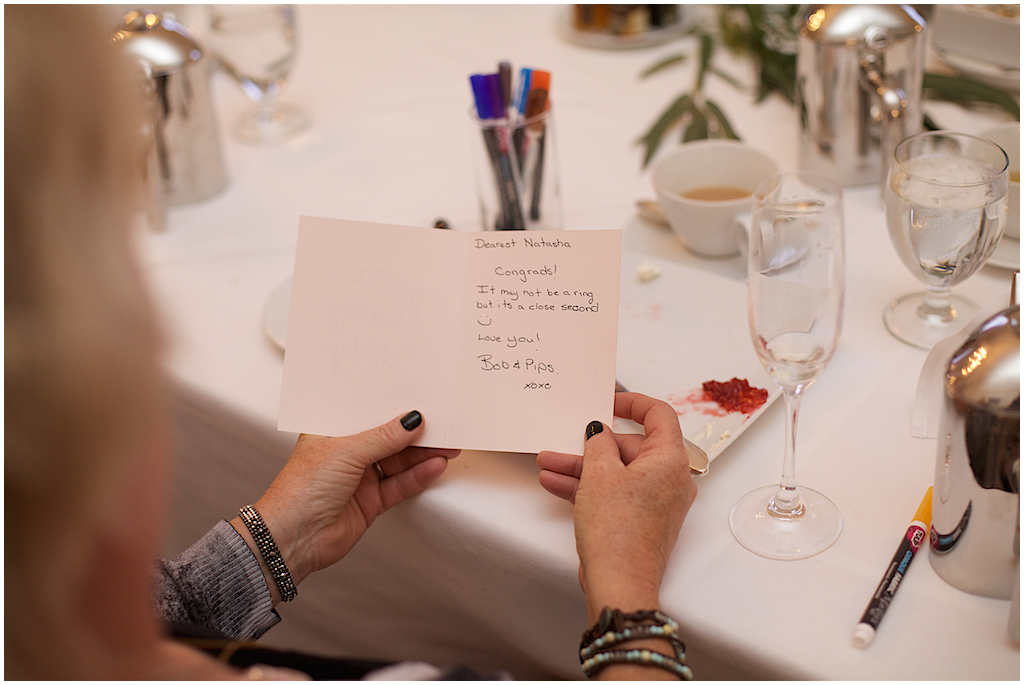 Dearest Natasha
Congrads!
It may not be a ring
but its a close second
Love you!
Bob & Pips.
xoxo